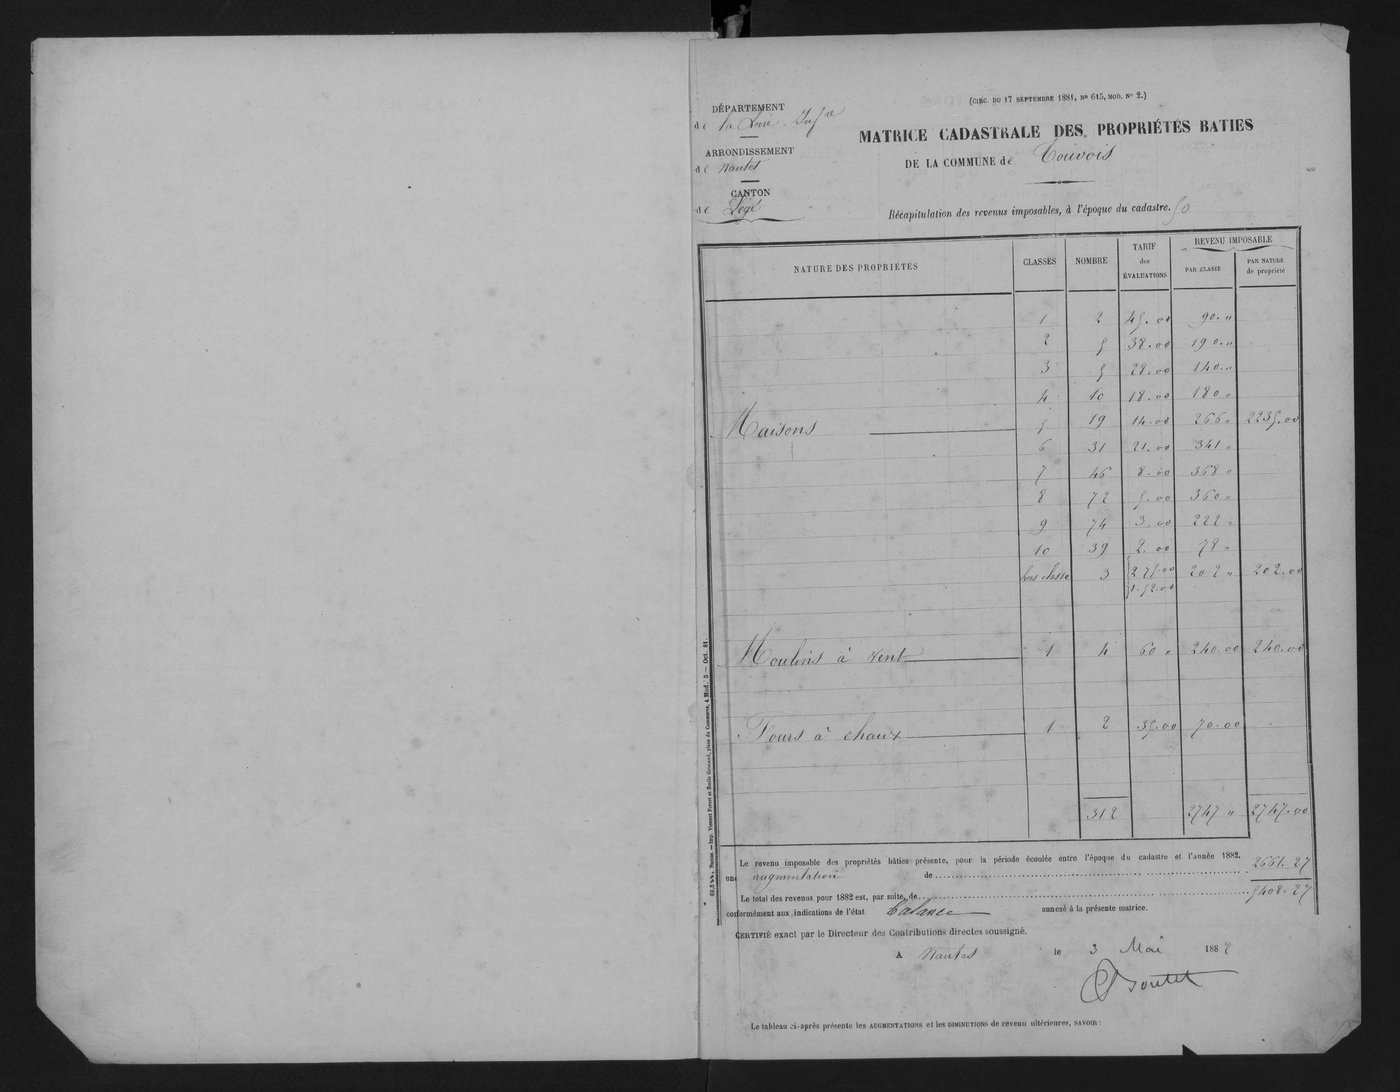 (CIRC. DU 17 SEPTEMBRE 1881, No 615, MOD. No 2.)
DÉPARTEMENT
de la Loire Infre
ARRONDISSEMENT
de Nantes
CANTON
de Legé
MATRICE CADASTRALE DES PROPRIÉTÉS BATIES
DE LA COMMUNE de Touvois
Récapitulation des revenus imposables, à l'époque du cadastre.
NATURE DES PROPRIÉTÉS CLASSES NOMBRE TARIF des ÉVALUATIONS REVENU IMPOSABLE
PAR CLASSE PAR NATURE de propriété
1 2 45.00 90. "
2 5 38.00 190. "
3 5 28.00 140. "
4 10 18.00 180 "
Maisons 5 19 14.00 266 " 2235.00
6 31 21.00 341 "
7 46 8.00 368 "
8 72 5.00 360 "
9 74 3.00 222 "
10 39 2.00 78 "
hors classe 3 2 75.00 202 " 202.00
1. 52.00
Moulins à vent 1 4 60 " 240.00 240.00
Fours à chaux 1 2 35.00 70.00
312 2747 " 2747.00
Le revenu imposable des propriétés bâties présente, pour la période écoulée entre l'époque du cadastre et l'année 1882,
une augmentation de 2661.27
Le total des revenus pour 1882 est, par suite, de 5408.27
conformément aux indications de l'état balance annexé à la présente matrice.
CERTIFIÉ exact par le Directeur des Contributions directes soussigné.
A Nantes le 3 Mai 1882
Le tableau ci-après présente les AUGMENTATIONS et les DIMINUTIONS de revenu ultérieures, SAVOIR :